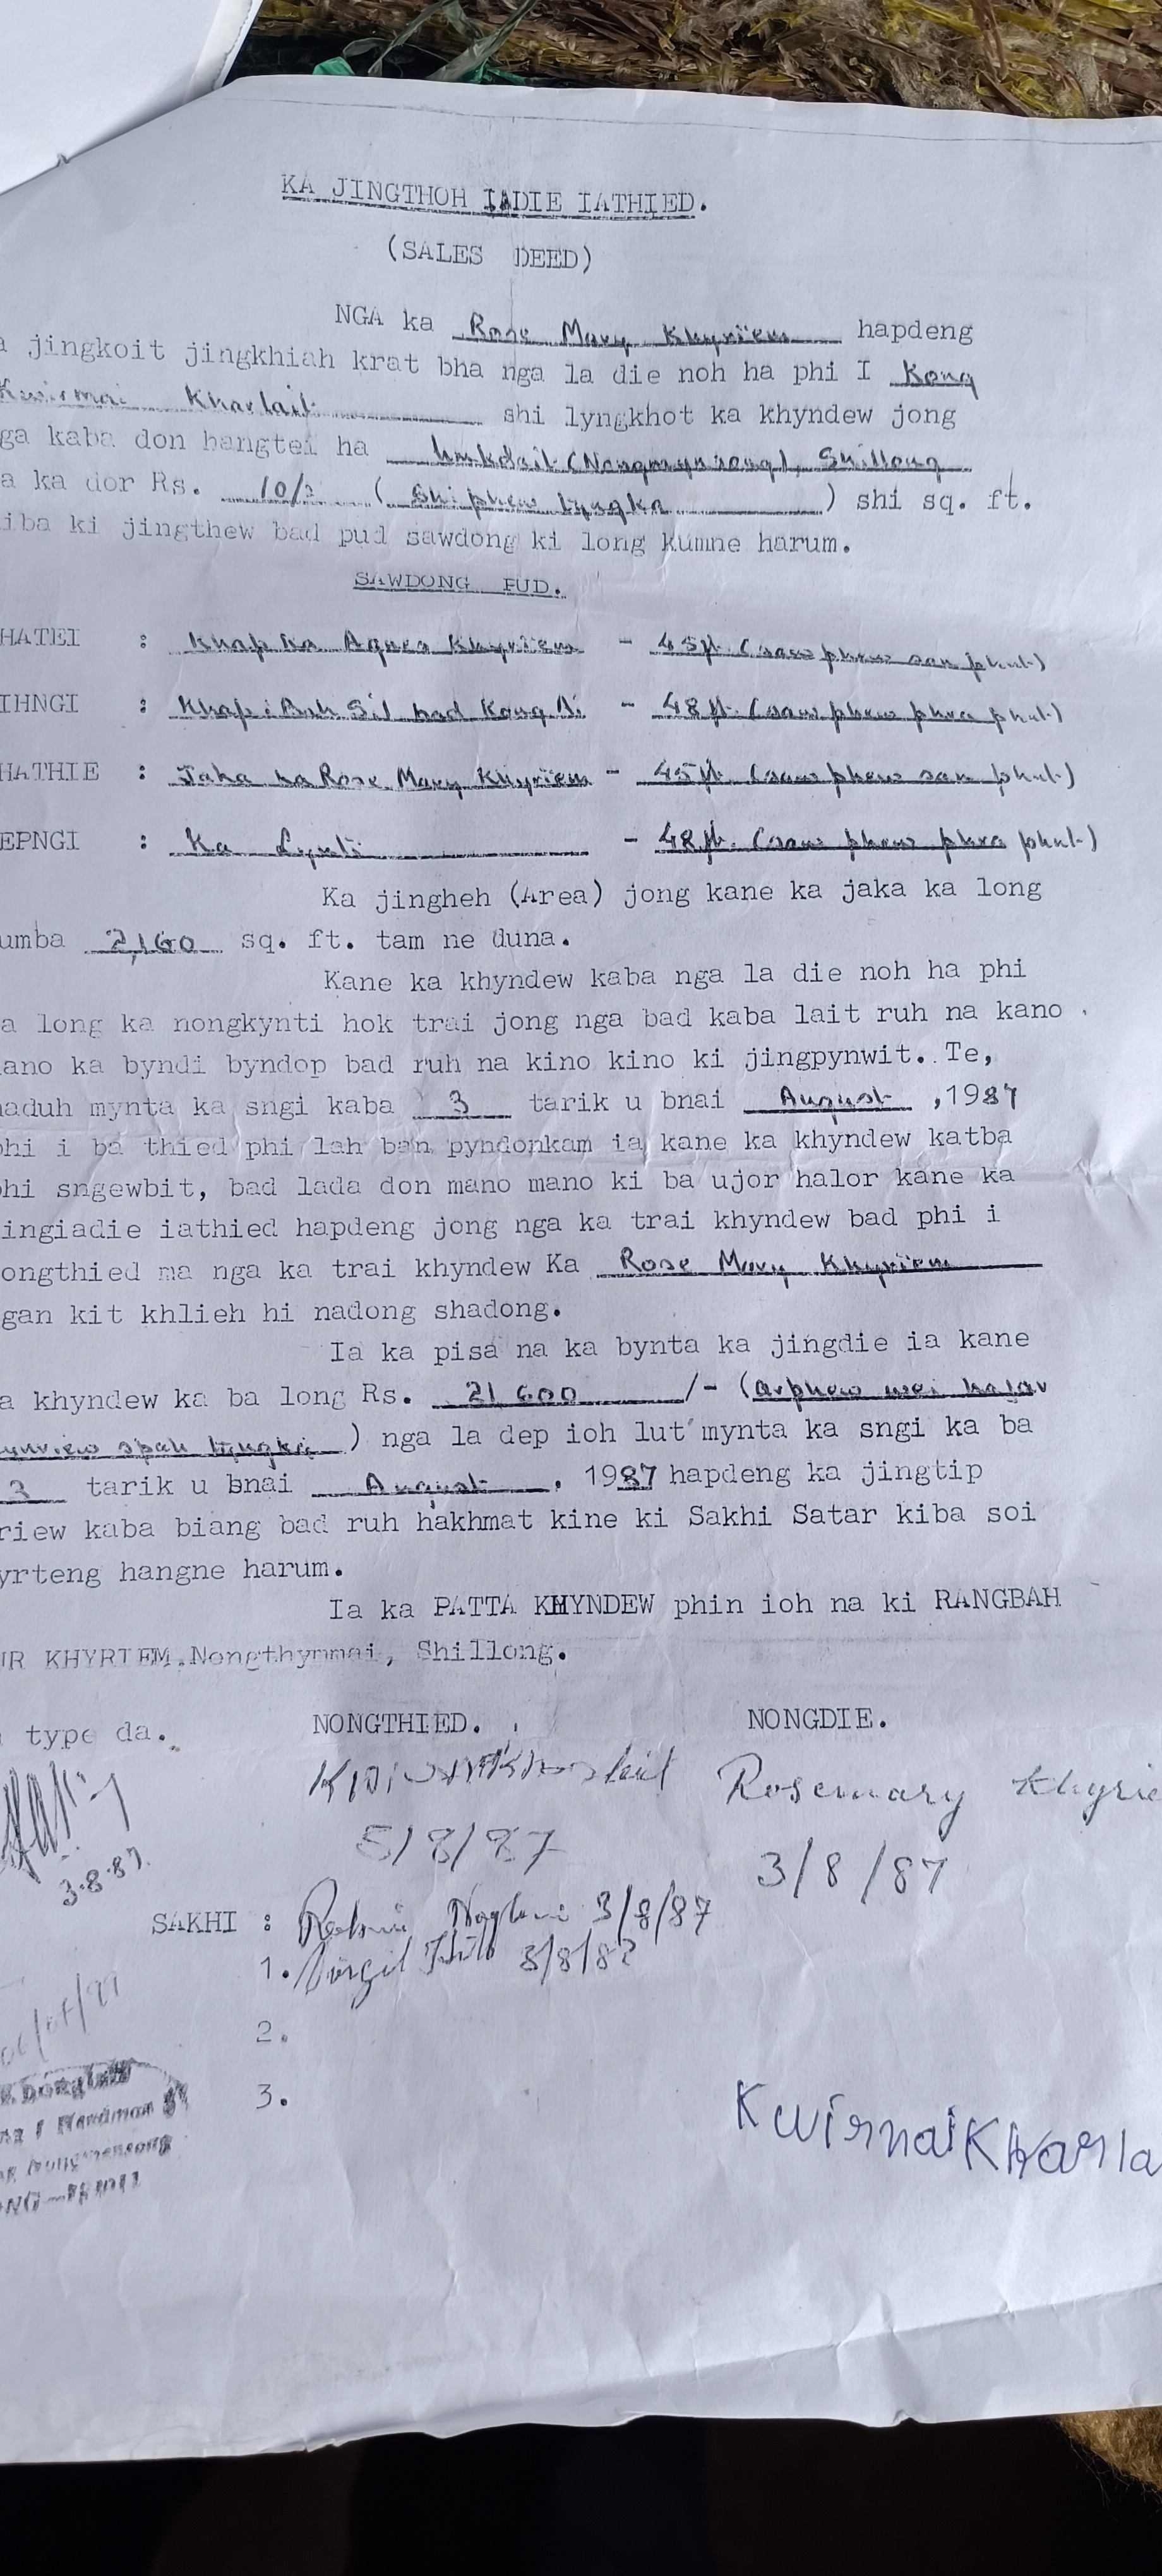 KA JINGTHOH IADIE IATHIED.
(SALES DEED)
NGA ka Rose Mary Khyriem hapdeng
a jingkoit jingkhiah krat bha nga la die noh ha phi I Kong
Kwirnai Kharlait shi lyngkhot ka khyndew jong
ga kaba don hangtei ha Umkdait (Nongmynsong), Shillong
a ka dor Rs. 10/- (Shiphew tyngka) shi sq. ft.
iba ki jingthew bad pud sawdong ki long kumne harum.
SAWDONG PUD.
HATEI : Khap ka Agnes Khyriem - 45ft. (saw phew san phut)
IHNGI : Khap i Bah Sil bad Kong - 48ft. (saw phew phra phut)
HATHIE : Jaka ka Rose Mary Khyriem - 45ft. (saw phew san phut)
EPNGI : Ka - 48ft. (saw phew phra phut)
Ka jingheh (Area) jong kane ka jaka ka long
umba 2,160 sq. ft. tam ne duna.
Kane ka khyndew kaba nga la die noh ha phi
a long ka nongkynti hok trai jong nga bad kaba lait ruh na kano
ano ka byndi byndop bad ruh na kino kino ki jingpynwit. Te,
naduh mynta ka sngi kaba 3 tarik u bnai August ,1987
phi i ba thied phi lah ban pyndonkam ia kane ka khyndew katba
phi sngewbit, bad lada don mano mano ki ba ujor halor kane ka
ingiadie iathied hapdeng jong nga ka trai khyndew bad phi i
ongthied ma nga ka trai khyndew Ka Rose Mary Khyriem
gan kit khlieh hi nadong shadong.
Ia ka pisa na ka bynta ka jingdie ia kane
a khyndew ka ba long Rs. 21 600/- (arphew wei hajar
ynriew spah tyngka) nga la dep ioh lut mynta ka sngi ka ba
3 tarik u bnai August, 1987 hapdeng ka jingtip
riew kaba biang bad ruh hakhmat kine ki Sakhi Satar kiba soi
yrteng hangne harum.
Ia ka PATTA KHYNDEW phin ioh na ki RANGBAH
UR KHYRIEM.Nongthymmai, Shillong.
type da. NONGTHIED. NONGDIE.
Rosemary Khyrie
5/8/87 3/8/87
3.8.87
SAKHI : 3/8/87
1. Virgil
2.
3.
KwirnaiKharla